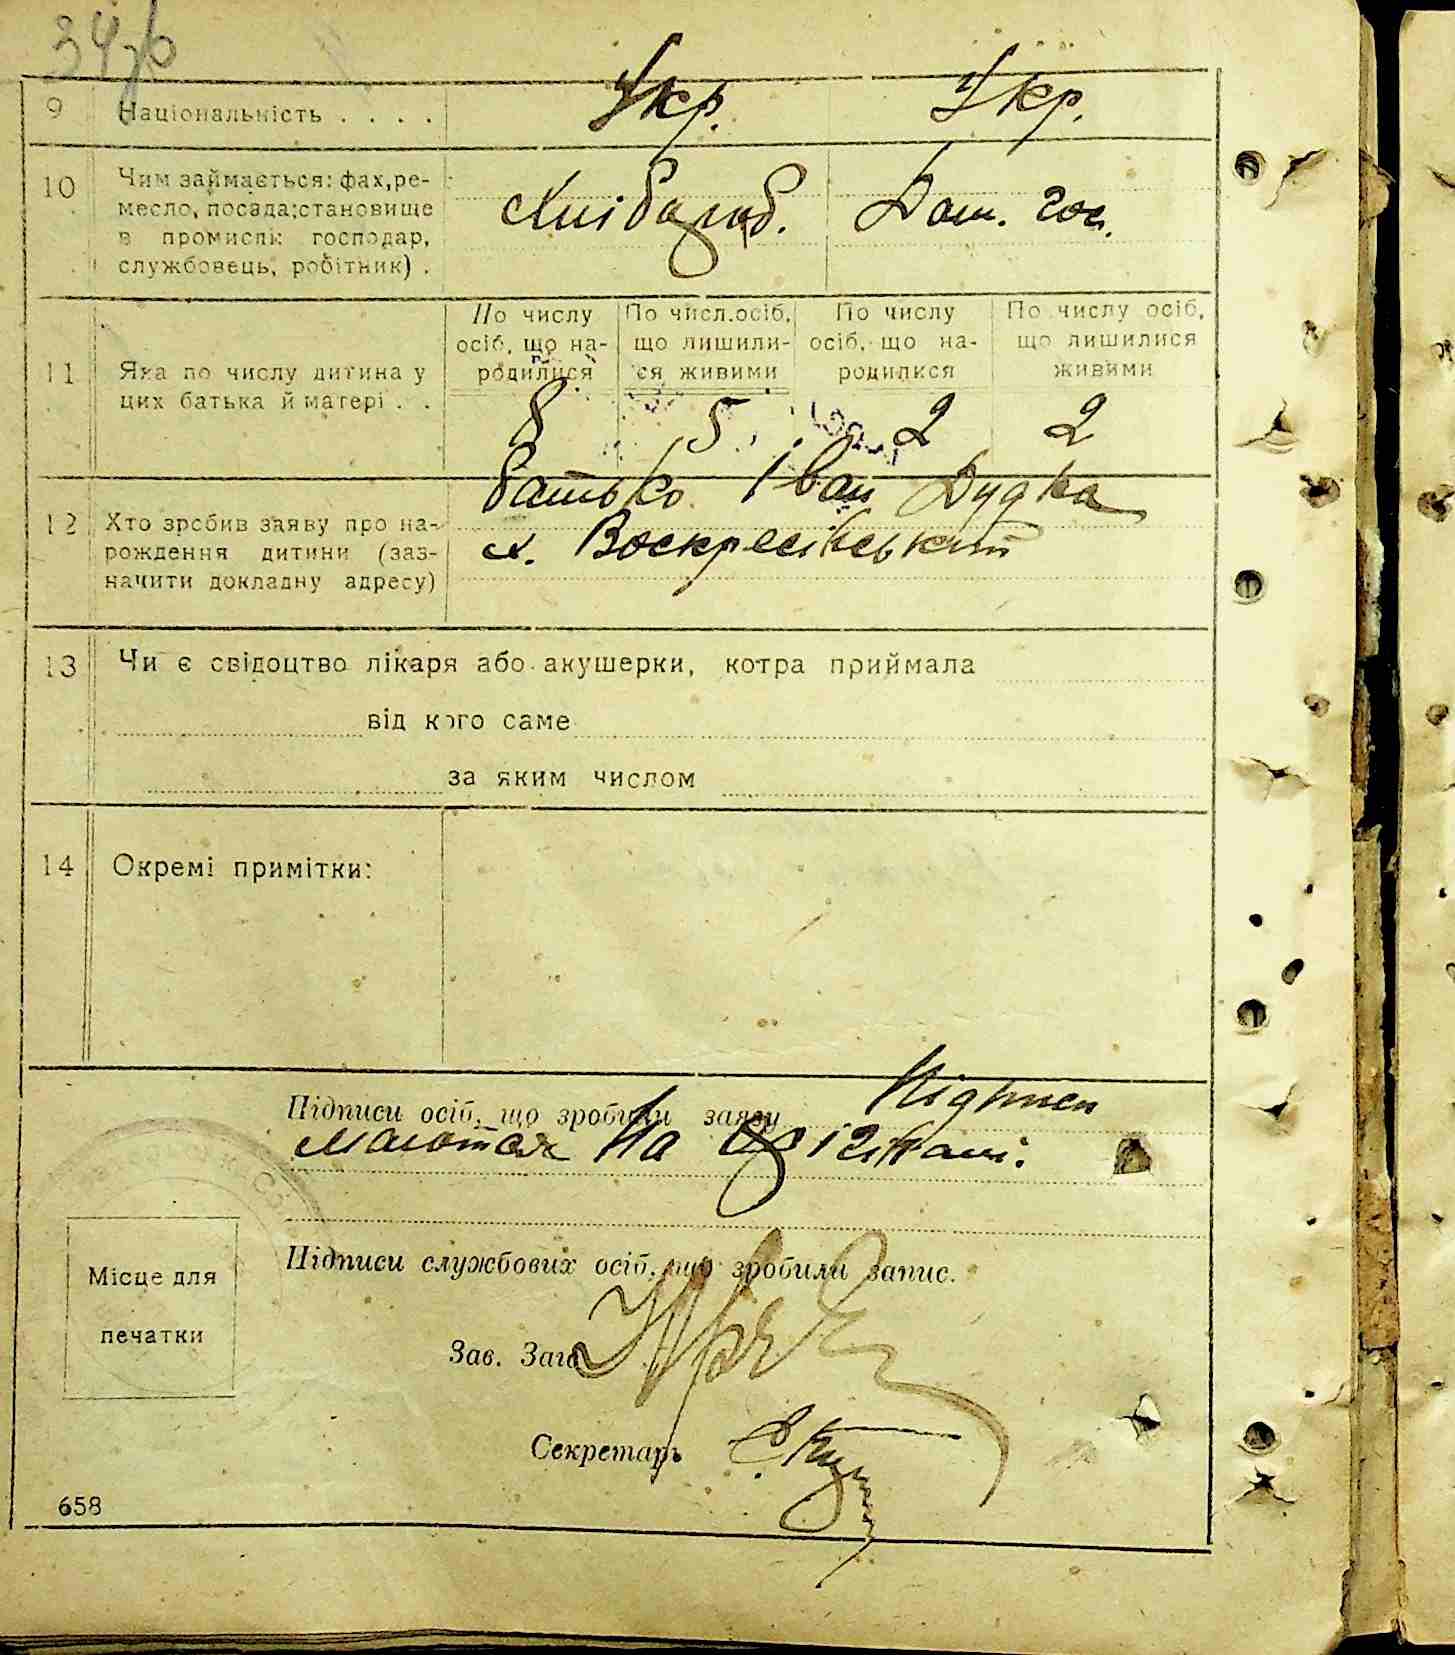 34зв
9 Національність . . . . Укр. Укр.
10 Чим займається: фах, ре-
месло, посада; становище
в промислі: господар,
службовець, робітник) .
Хлібороб. Дом. гос.
По числу По числ. осіб, По числу По числу осіб,
осіб, що на- що лишили- осіб, що на- що лишилися
родилися ся живими родилися живими
11 Яка по числу дитина у
цих батька й матері . .
8 5 2 2
12 Хто зробив заяву про на-
рождення дитини (заз-
начити докладну адресу)
батько Іван Дудка
х. Воскресівський
13 Чи є свідоцтво лікаря або акушерки, котра приймала
від кого саме
за яким числом
14 Окремі примітки:
Підписи осіб, що зробили заяву Підписи
маються на оригіналі.
Підписи службових осіб, що зробили запис.
Місце для
печатки
Зав. Заг
Секретарь
658